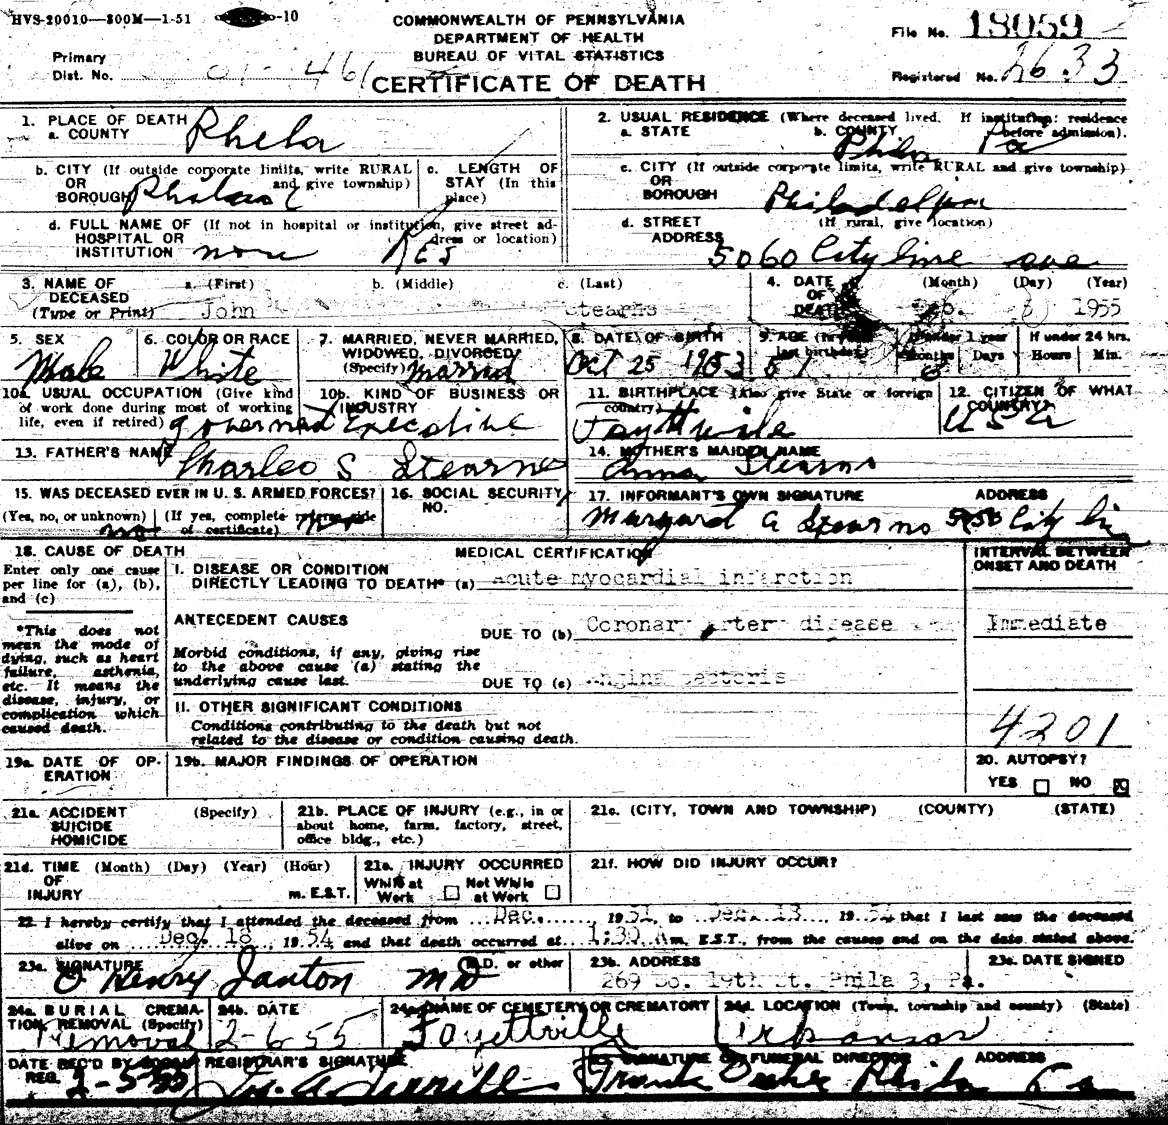 HVS-20010—300M—1-51 -10
COMMONWEALTH OF PENNSYLVANIA
DEPARTMENT OF HEALTH
BUREAU OF VITAL STATISTICS
CERTIFICATE OF DEATH
File No. 18059
Registered No. 2633
Primary
Dist. No. 01-461
1. PLACE OF DEATH
a. COUNTY Phila
2. USUAL RESIDENCE (Where deceased lived. If institution: residence
a. STATE b. COUNTY before admission).
Phila Pa
b. CITY (If outside corporate limits, write RURAL
OR and give township)
BOROUGH
c. LENGTH OF
STAY (In this
place)
c. CITY (If outside corporate limits, write RURAL and give township)
OR
BOROUGH Philadelphia
d. FULL NAME OF (If not in hospital or institution, give street ad-
HOSPITAL OR dress or location)
INSTITUTION none Res
d. STREET (If rural, give location)
ADDRESS
5060 City line ave
3. NAME OF a. (First) b. (Middle) c. (Last)
DECEASED
(Type or Print) John Stearns
4. DATE (Month) (Day) (Year)
OF
DEATH 1955
5. SEX
Male
6. COLOR OR RACE
White
7. MARRIED, NEVER MARRIED,
WIDOWED, DIVORCED
(Specify) Married
8. DATE OF BIRTH
Oct 25
9. AGE (In years
last birthday)
51
If under 1 year
Months Days
If under 24 hrs.
Hours Min.
10a. USUAL OCCUPATION (Give kind
of work done during most of working
life, even if retired)
10b. KIND OF BUSINESS OR
INDUSTRY
Executive
11. BIRTHPLACE (Also give State or foreign
country)
12. CITIZEN OF WHAT
COUNTRY?
USA
13. FATHER'S NAME
Charles S Stearns
14. MOTHER'S MAIDEN NAME
Anna Stearns
15. WAS DECEASED EVER IN U. S. ARMED FORCES?
(Yes, no, or unknown) (If yes, complete reverse side
no of certificate)
16. SOCIAL SECURITY
NO.
17. INFORMANT'S OWN SIGNATURE ADDRESS
Margaret A Stearns City Lin
18. CAUSE OF DEATH
Enter only one cause
per line for (a), (b),
and (c)
MEDICAL CERTIFICATION
INTERVAL BETWEEN
ONSET AND DEATH
I. DISEASE OR CONDITION
DIRECTLY LEADING TO DEATH* (a) Acute myocardial infarction
*This does not
mean the mode of
dying, such as heart
failure, asthenia,
etc. It means the
disease, injury, or
complication which
caused death.
ANTECEDENT CAUSES
DUE TO (b) Coronary artery disease Immediate
Morbid conditions, if any, giving rise
to the above cause (a) stating the
underlying cause last. DUE TO (c) Angina pectoris
II. OTHER SIGNIFICANT CONDITIONS
Conditions contributing to the death but not
related to the disease or condition causing death.
4201
19a. DATE OF OP-
ERATION
19b. MAJOR FINDINGS OF OPERATION
20. AUTOPSY?
YES NO
21a. ACCIDENT (Specify)
SUICIDE
HOMICIDE
21b. PLACE OF INJURY (e.g., in or
about home, farm, factory, street,
office bldg., etc.)
21c. (CITY, TOWN AND TOWNSHIP) (COUNTY) (STATE)
21d. TIME (Month) (Day) (Year) (Hour)
OF
INJURY m. E.S.T.
21e. INJURY OCCURRED
While at Not While
Work at Work
21f. HOW DID INJURY OCCUR?
22. I hereby certify that I attended the deceased from Dec. , 1951 to Dec. 18 , 1954 that I last saw the deceased
alive on Dec. 18 , 1954 and that death occurred at 1:30 A m, E.S.T., from the causes and on the date stated above.
23a. SIGNATURE M.D. or other
Henry Janton MD
23b. ADDRESS
269 So. 19th St. Phila 3, Pa.
23c. DATE SIGNED
24a. BURIAL CREMA-
TION, REMOVAL (Specify)
Removal
24b. DATE
2-6-55
24c. NAME OF CEMETERY OR CREMATORY
Fayettville
24d. LOCATION (Town, township and county) (State)
Arkansas
DATE REC'D BY LOCAL
REG.
REGISTRAR'S SIGNATURE
25. SIGNATURE OF FUNERAL DIRECTOR ADDRESS
Frank Phila Pa